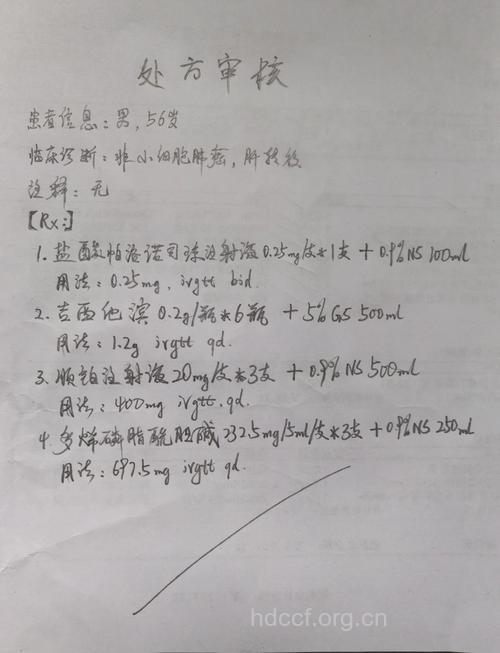 处方审核
患者信息：男，56岁
临床诊断：非小细胞肺癌，肝转移
注释：无
【Rx：】
1. 盐酸帕洛诺司琼注射液0.25mg/支*1支 + 0.9%NS 100ml
用法：0.25mg，ivgtt bid.
2. 吉西他滨 0.2g/瓶*6瓶 + 5%GS 500ml
用法：1.2g ivgtt qd.
3. 顺铂注射液20mg/支*3支 + 0.9%NS 500ml
用法：400mg ivgtt.qd.
4. 多烯磷脂酰胆碱232.5mg/5ml/支*3支+0.9%NS 250ml
用法：697.5mg ivgtt qd.
hdccf.org.cn